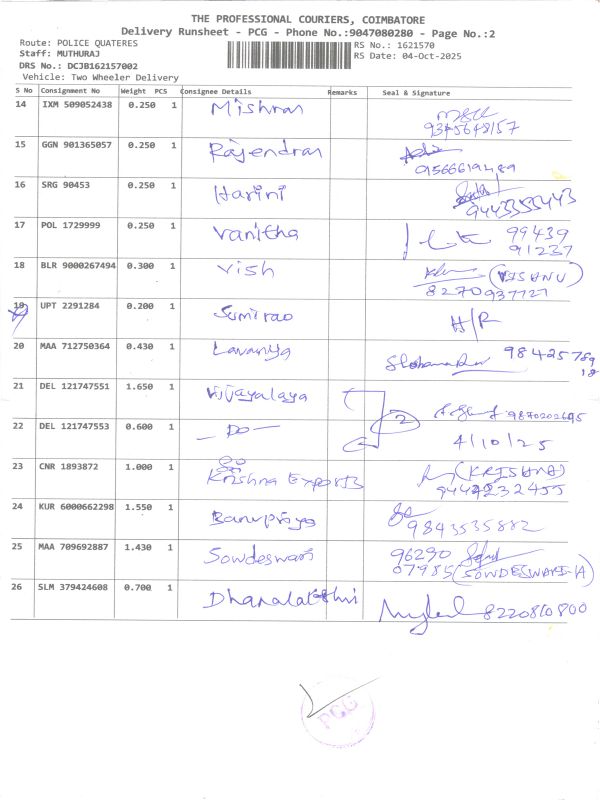 THE PROFESSIONAL COURIERS, COIMBATORE
Delivery Runsheet - PCG - Phone No.:9047080280 - Page No.:2
Route: POLICE QUATERES RS No.: 1621570
Staff: MUTHURAJ RS Date: 04-Oct-2025
DRS No.: DCJB162157002
Vehicle: Two Wheeler Delivery
S No Consignment No Weight PCS Consignee Details Remarks Seal & Signature
14 IXM 509052438 0.250 1 Mishran
15 GGN 901365057 0.250 1 Rajendran
9566619489
16 SRG 90453 0.250 1 Harini
9443355443
17 POL 1729999 0.250 1 Vanitha 99439
91237
18 BLR 9000267494 0.300 1 Vish (VISHNU)
8270937727
19 UPT 2291284 0.200 1 Sumirao H/R
20 MAA 712750364 0.430 1 Lavanya 98425789
18
21 DEL 121747551 1.650 1 Vijayalaya 2 9870202695
22 DEL 121747553 0.600 1 — DO — 4/10/25
23 CNR 1893872 1.000 1 Krishna Exports (KRISHNA)
9442232455
24 KUR 6000662298 1.550 1 Banupriya 9843535882
25 MAA 709692887 1.430 1 Sowdeswari 96290
07985 (SOWDESWARI-A)
26 SLM 379424608 0.700 1 Dhanalakshmi 8220810800
PCG